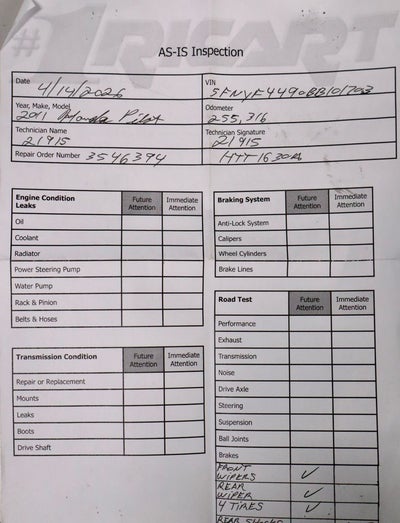 #1 RICART
AS-IS Inspection
Date 4/14/2026
VIN 5FNYF4490BB101703
Year, Make, Model 2011 Honda Pilot
Odometer 255,316
Technician Name 21915
Technician Signature 21915
Repair Order Number 3546394
Engine Condition Future Attention Immediate Attention
Leaks
Oil
Coolant
Radiator
Power Steering Pump
Water Pump
Rack & Pinion
Belts & Hoses
Transmission Condition Future Attention Immediate Attention
Repair or Replacement
Mounts
Leaks
Boots
Drive Shaft
Braking System Future Attention Immediate Attention
Anti-Lock System
Calipers
Wheel Cylinders
Brake Lines
Road Test Future Attention Immediate Attention
Performance
Exhaust
Transmission
Noise
Drive Axle
Steering
Suspension
Ball Joints
Brakes
FRONT
WIPERS ✓
REAR
WIPER ✓
4 TIRES ✓
REAR